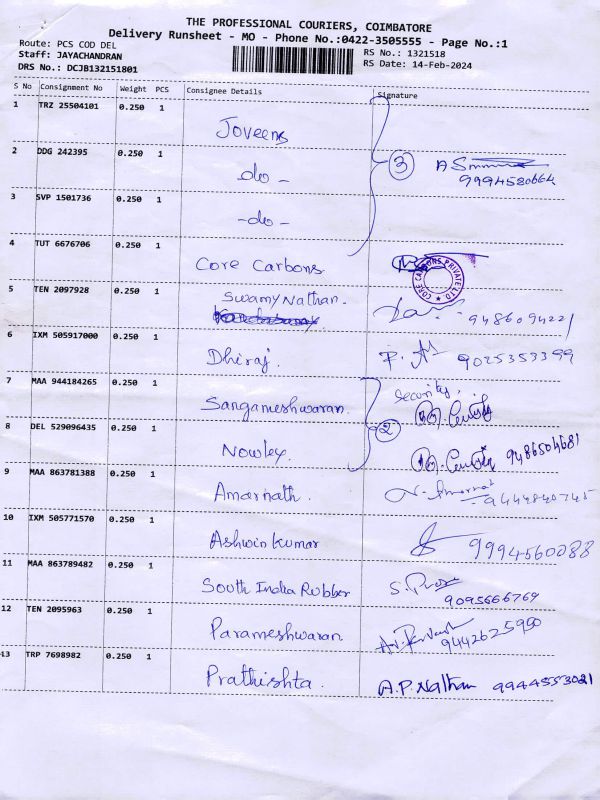 THE PROFESSIONAL COURIERS, COIMBATORE
Delivery Runsheet - MO - Phone No.:0422-3505555 - Page No.:1
Route: PCS COD DEL
Staff: JAYACHANDRAN
DRS No.: DCJB132151801
RS No.: 1321518
RS Date: 14-Feb-2024
S No Consignment No Weight PCS Consignee Details Signature
1 TRZ 25504101 0.250 1 Joveens
2 DDG 242395 0.250 1 -do- 3 9994580664
3 SVP 1501736 0.250 1 -do-
4 TUT 6676706 0.250 1 Core Carbons CORE CARBONS PRIVATE LTD.
5 TEN 2097928 0.250 1 Swamy Nathan. 9486094221
6 IXM 505917000 0.250 1 Dhiraj. 9025353399
7 MAA 944184265 0.250 1 Sangameshwaran. Security,
8 DEL 529096435 0.250 1 Nowley. 2 9486504681
9 MAA 863781388 0.250 1 Amarnath. 9444840745
10 IXM 505771570 0.250 1 Ashwin Kumar 9994560088
11 MAA 863789482 0.250 1 South India Rubber 9095666769
12 TEN 2095963 0.250 1 Parameshwaran 9442625900
13 TRP 7698982 0.250 1 Prathishta. A.P.Nathan 9944553021